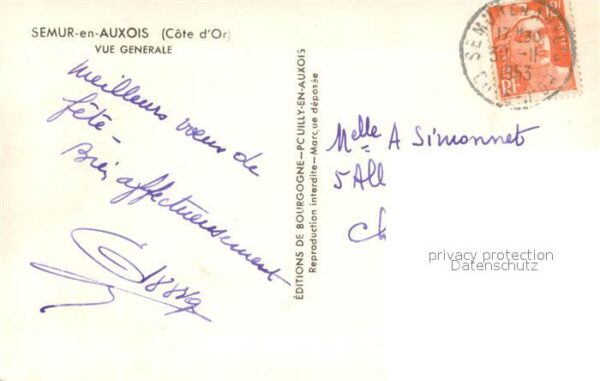 SEMUR-en-AUXOIS (Côte d'Or)
VUE GENERALE
meilleurs vœux de
fête -
Bien affectueusement
ÉDITIONS DE BOURGOGNE—POUILLY-EN-AUXOIS
Reproduction interdite—Marque déposée
SEMUR-EN-
17H30
30-11
1953
RF
Melle A Simonnet
5 All
Ch
privacy protection
Datenschutz